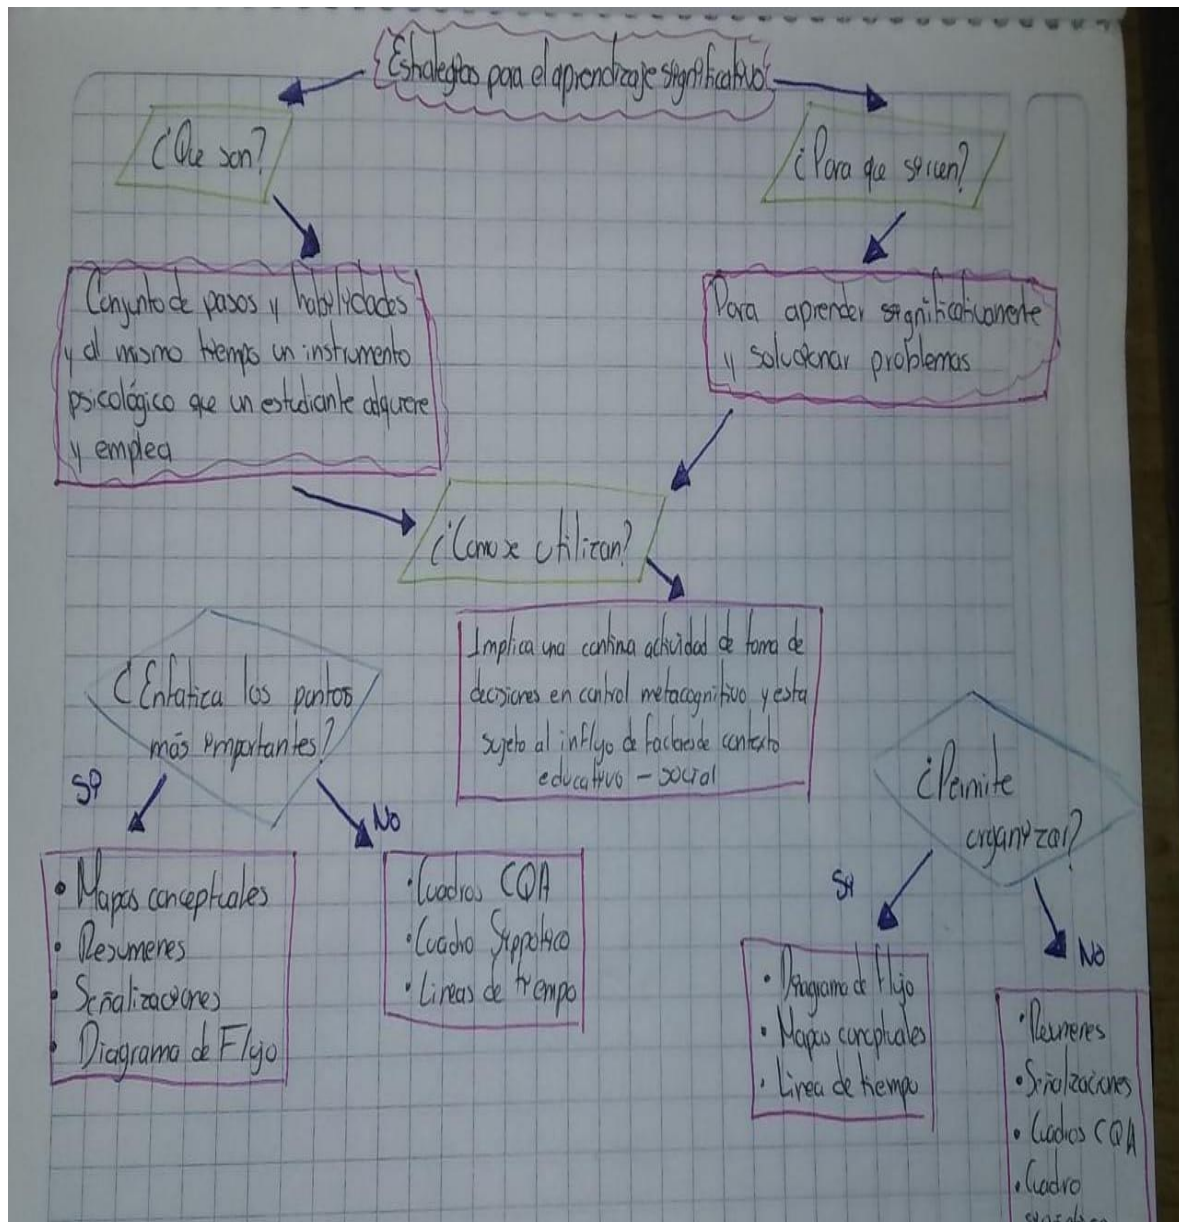 Estrategias para el aprendizaje significativo
¿Que son?
¿Para que sirven?
Conjunto de pasos y habilidades
y al mismo tiempo un instrumento
psicológico que un estudiante adquiere
y emplea
Para aprender significativamente
y solucionar problemas
¿Como se utilizan?
Implica una contina actividad de toma de
decisiones en control metacognitivo y esta
sujeto al influjo de factores de contexto
educativo - social
¿Enfatiza los puntos
más importantes?
Si
No
• Mapas conceptuales
• Resumenes
• Señalizaciones
• Diagrama de Flujo
• Cuadros CQA
• Cuadro Sinpotico
• Lineas de tiempo
¿Permite
organizar?
Si
No
• Diagrama de Flujo
• Mapas conceptuales
• Linea de tiempo
• Resmenes
• Señalizaciones
• Cuadros CQA
• Cuadro